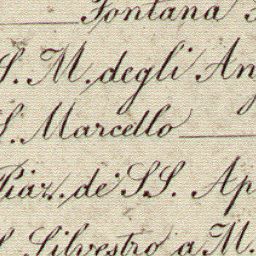 Fontana
S. M. degli An
S. Marcello
Piaz. de' SS. Ap
S. Silvestro a M.